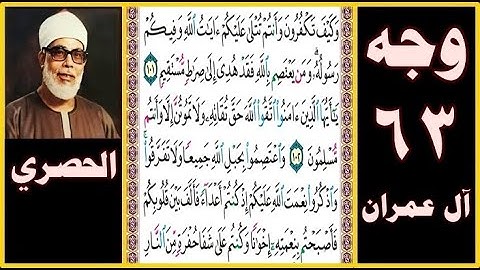 وجه
٦٣
آل عمران
وَكَيْفَ تَكْفُرُونَ وَأَنتُمْ تُتْلَىٰ عَلَيْكُمْ ءَايَٰتُ ٱللَّهِ وَفِيكُمْ
رَسُولُهُۥ ۗ وَمَن يَعْتَصِم بِٱللَّهِ فَقَدْ هُدِىَ إِلَىٰ صِرَٰطٍ مُّسْتَقِيمٍ ١٠١
يَٰٓأَيُّهَا ٱلَّذِينَ ءَامَنُوا۟ ٱتَّقُوا۟ ٱللَّهَ حَقَّ تُقَاتِهِۦ وَلَا تَمُوتُنَّ إِلَّا وَأَنتُم
مُّسْلِمُونَ ١٠٢ وَٱعْتَصِمُوا۟ بِحَبْلِ ٱللَّهِ جَمِيعًا وَلَا تَفَرَّقُوا۟ ۚ
وَٱذْكُرُوا۟ نِعْمَتَ ٱللَّهِ عَلَيْكُمْ إِذْ كُنتُمْ أَعْدَآءً فَأَلَّفَ بَيْنَ قُلُوبِكُمْ
فَأَصْبَحْتُم بِنِعْمَتِهِۦٓ إِخْوَٰنًا وَكُنتُمْ عَلَىٰ شَفَا حُفْرَةٍ مِّنَ ٱلنَّارِ
الحصري